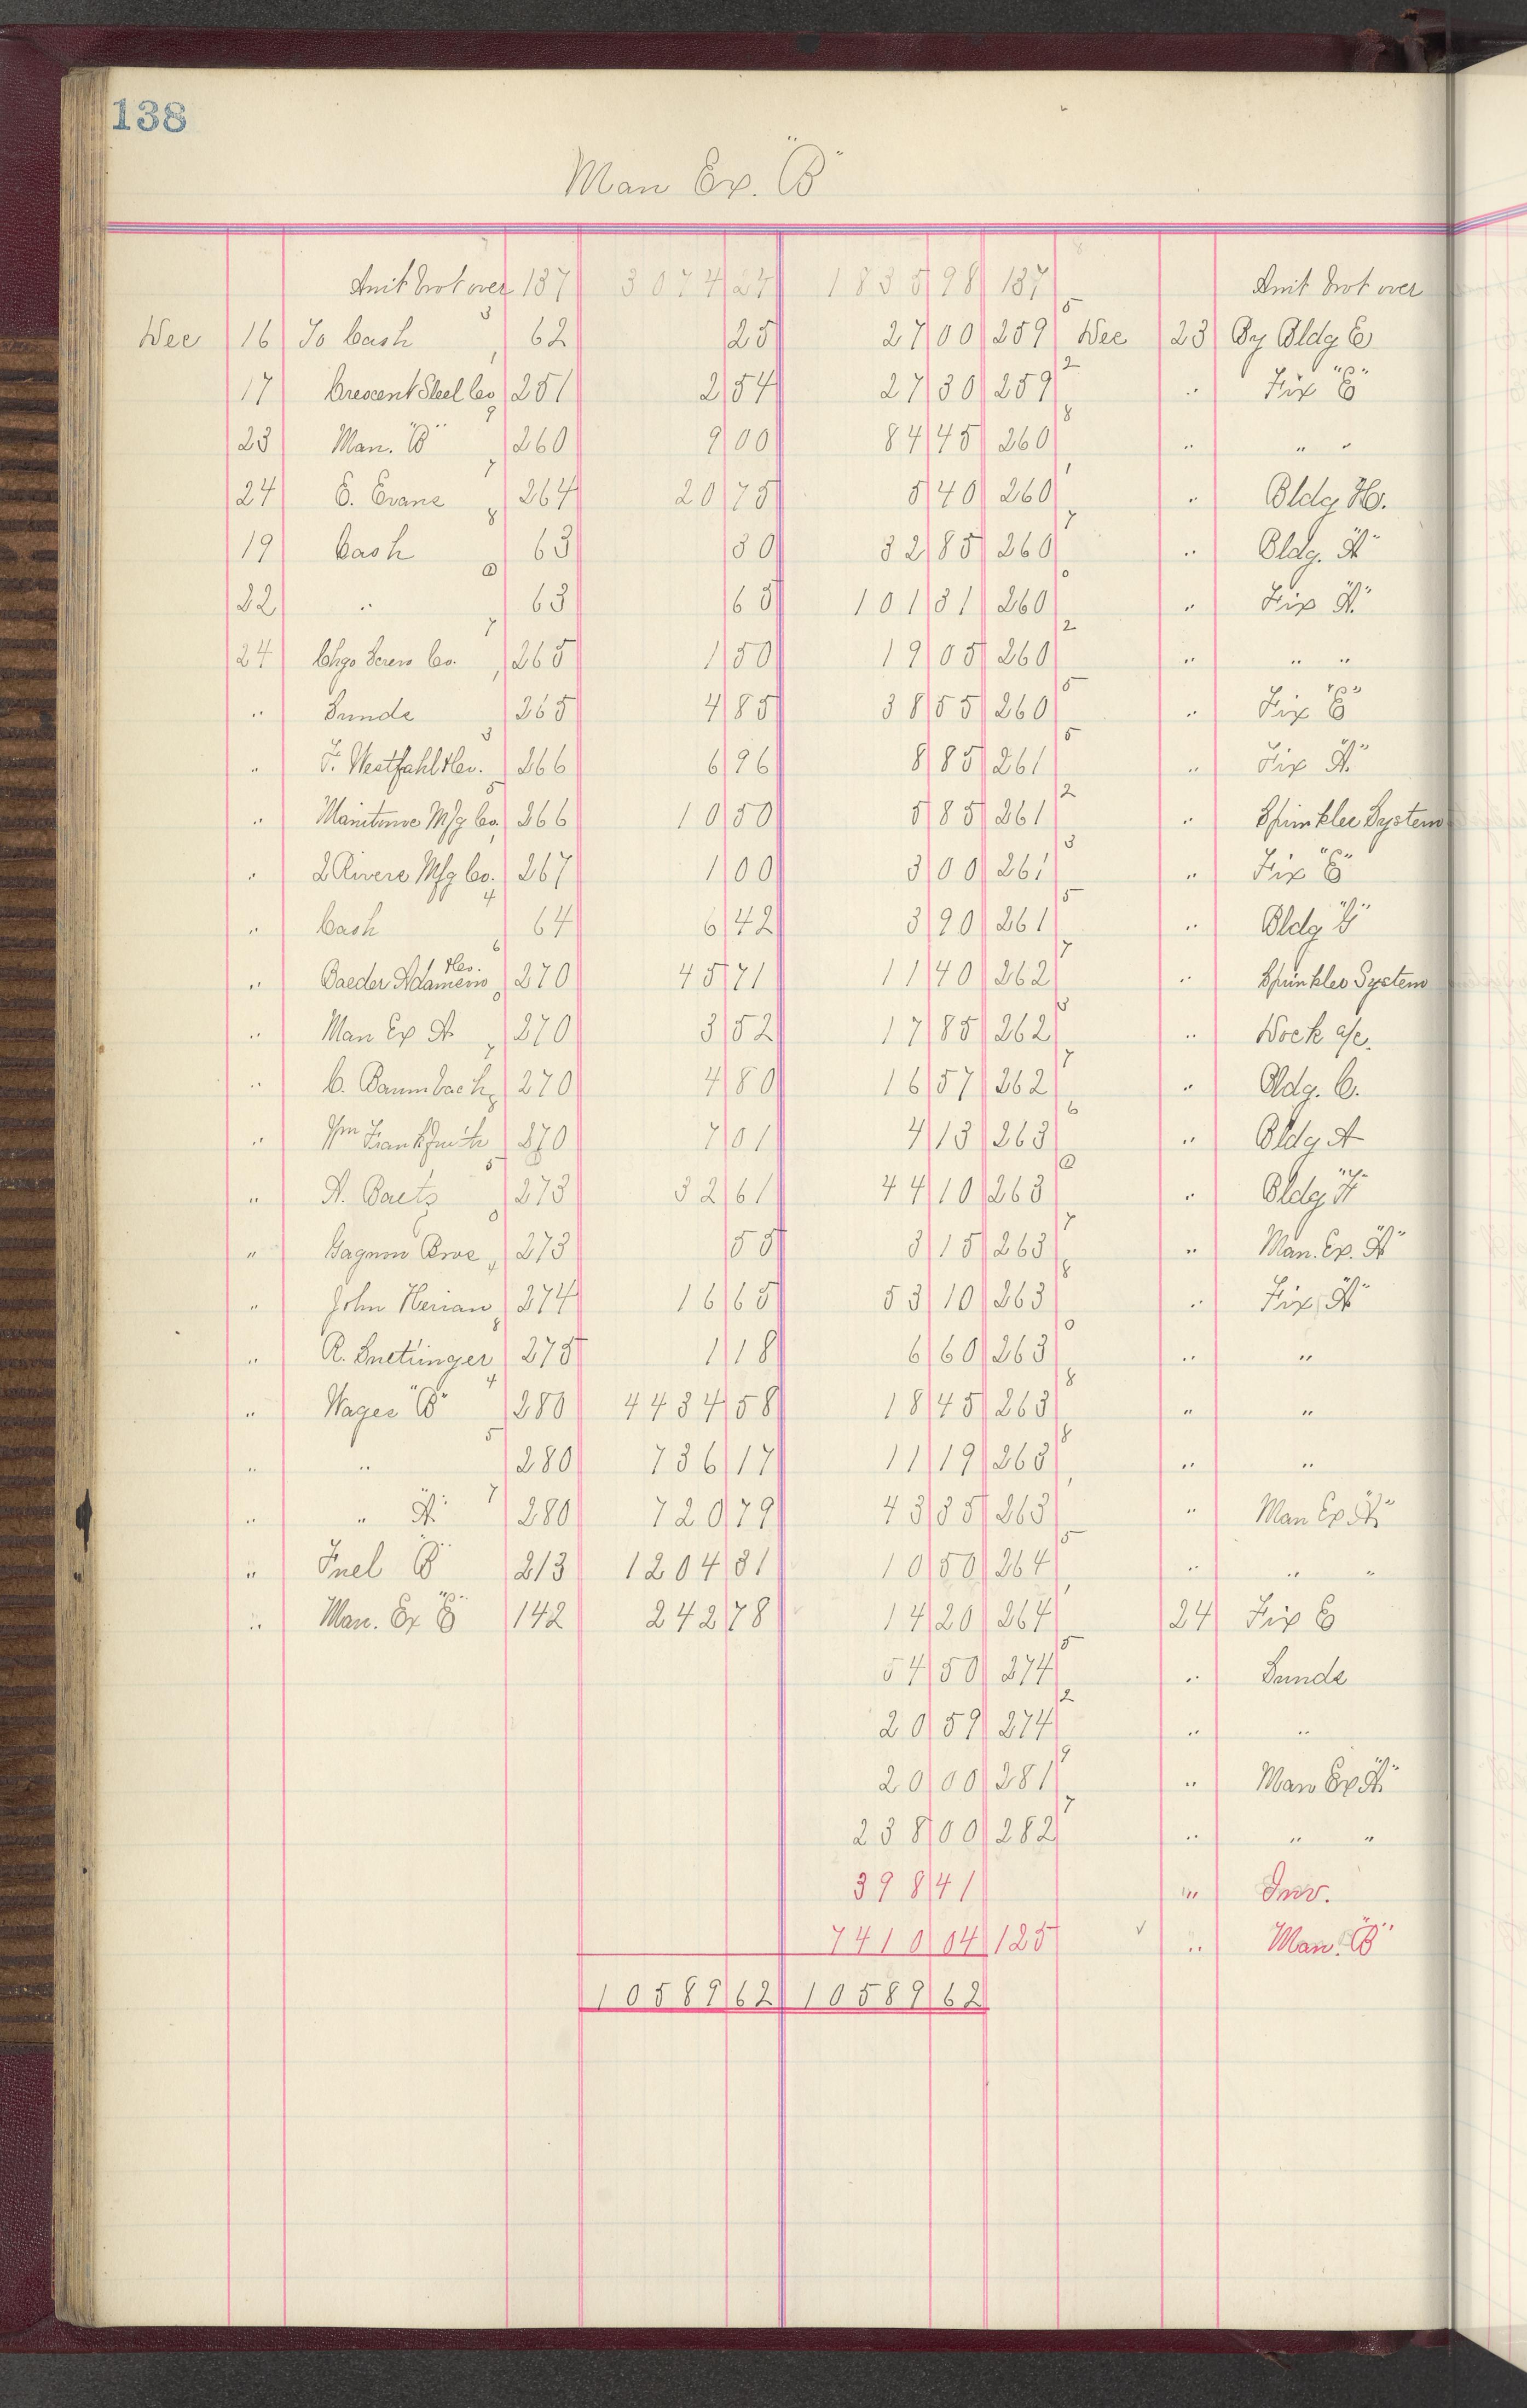 138
Man Ex. "B"
Amt brot over 137 3074 24 1835 98 137 Amt brot over
Dec 16 To Cash 62 25 27 00 259 Dec 23 By Bldg E
17 Crescent Steel Co 251 2 54 27 30 259 " Fix "E"
23 Man. "B" 260 9 00 84 45 260 " " "
24 E. Evans 264 20 75 5 40 260 " Bldg H.
19 Cash 63 30 32 85 260 " Bldg. "A"
22 " 63 65 101 31 260 " Fix "A"
24 Chgo Screw Co. 265 1 50 19 05 260 " " "
" Sunds 265 4 85 38 55 260 " Fix "E"
" F. Westfahl & Rev. 266 6 96 8 85 261 " Fix "A"
" Manitowoc Mfg Co. 266 10 50 5 85 261 " Sprinkler System
" 2 Rivers Mfg Co. 267 1 00 3 00 261 " Fix "E"
" Cash 64 6 42 3 90 261 " Bldg
" Baeder Adamson 270 45 71 11 40 262 " Sprinkler System
" Man Ex A 270 3 52 17 85 262 " Dock a/c.
" C. Baumbach 270 4 80 16 57 262 " Bldg. C.
" Wm Frankfurth 270 7 01 4 13 263 " Bldg A
" A. Baetz 273 32 61 44 10 263 " Bldg "F"
" Gagnon Bros 273 55 3 15 263 " Man. Ex. "A"
" John Herian 274 16 65 53 10 263 " Fix "A"
" R. Suettinger 275 1 18 6 60 263 " "
" Wages "B" 280 4434 58 18 45 263 " "
" " 280 736 17 11 19 263 " "
" " "A" 280 720 79 43 35 263 " Man Ex "A"
" Fuel "B" 213 1204 31 10 50 264 " " "
" Man. Ex "E" 142 242 78 14 20 264 24 Fix E
54 50 274 " Sunds
20 59 274 " "
20 00 281 " Man Ex "A"
238 00 282 " " "
398 41 " Inv.
7410 04 125 ✓ " Man. "B"
10589 62 10589 62